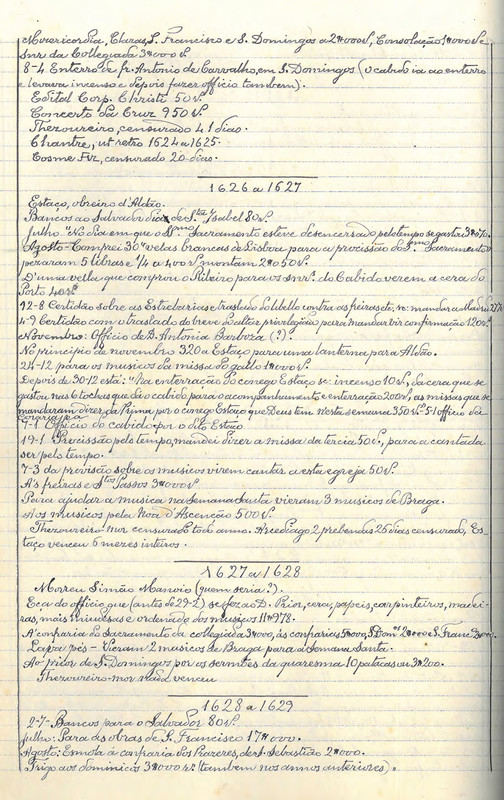 Misericordia, Claras, S. Francisco e S. Domingos a 2#000 r., Consolação 1#000 r. e
snr da Collegiada 3#000 r.
8-4 Enterro de fr. Antonio de Carvalho, em S. Domingos (o cabido ia ao enterro
e levava incenso e depois fazer officio tambem).
Edital Corp. Christi 50 r.
Concerto da Cruz 950 r.
Thezoureiro, censurado 41 dias.
Chantre, ut retro 1624 a 1625.
Cosme Frz, censurado 20 dias.
1626 a 1627
Estaço, obreiro d'Aldão.
Bancos ao Salvador dia de Sta Isabel 80 r.
Julho "No dia em que o Smo Sacramento esteve desencerrado pelo tempo se gastou
Agosto - Comprei 30 velas brancas de Lisboa para a procissão do S.mo Sacramento
pezaram 5 libras e 1/4 a 400 r. montam 2#050 r.
D'uma vella que comprou o Ribeiro para os snrs do Cabido verem a cera do
Porto 40 r.
12-8 Certidão sobre as Estrebarias e traslado do libello contra as freiras etc.
4-9 Certidão com o traslado do breve do altar privilegiado, para mandar vir confirmação 120 r.
Novembro: Officio de D. Antonia Barboza (?).
No principio de novembro 320 a Estaço para uma lanterna para Aldão.
24-12 para os musicos da missa do gallo 1#000 r.
Depois de 30-12 está: "Na enterração do conego Estaço se: incenso 10 r., da cera que se
gastou nas 6 tochas que dá o cabido para o acompanhamento e enterração 200 r., as missas que se
mandaram dizer da Prima por o conego Estaço que Deus tem nesta semana 350 r.
7-1 Officio do cabido por o dito Estaço
19-1 Procissão pelo tempo, mandei dizer a missa da tercia 50 r., para a cantada
ser pelo tempo.
7-3 da provisão sobre os musicos virem cantar a esta egreja 50 r.
A's freiras e Stos Passos 3#000 r.
Para ajudar a musica na Semana Santa vieram 3 musicos de Braga.
Aos musicos pela Noa d'Ascenção 500 r.
Thezoureiro-mor censurado todo anno. Arcediago 2 prebendas 25 dias censurado, Es-
taço venceu 6 mezes inteiros.
1627 a 1628
Morreu Simão Manoio (quem seria?).
Eça do officio que (antes de 29-2) se fez ao D. Prior, cera, papeis, carpinteiros, madei-
ras, mais miudesas e ordenado dos musicos 11#978.
A' confraria do Sacramento da collegiada 3#000, ás confrarias
Lapa pés - Vieram 2 musicos de Braga para a Semana Santa.
Ao prior de S. Domingos por os sermões da quaresma 10 patacas ou 3#200.
Thezoureiro-mor nada venceu
1628 a 1629
2-7- Bancos para o Salvador 80 r.
Julho: Para as obras de S. Francisco 17#000.
Agosto: Esmola á confraria dos Prazeres, de S. Sebastião 2#000.
Trigo aos dominicos 3#000 r. (tambem nos annos anteriores).